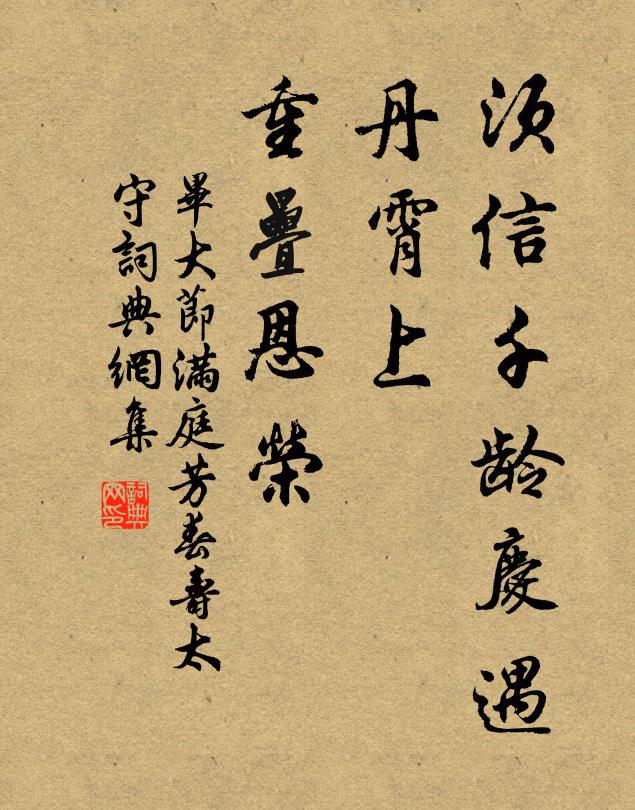 须信千龄慶遇
丹霄上
重疊恩榮
畢大節滿庭芳春壽太
守詞典網集
詞典网印